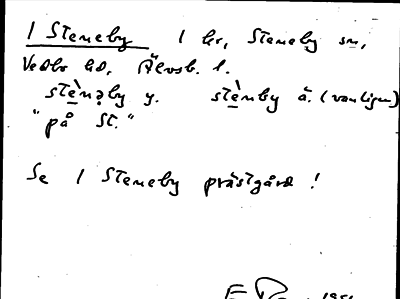 1 Steneby 1 hr, Steneby sn,
Vedbo hd, Älvsb. l.
stèn̥əby y. stènby ä. (vanligen)
"på St."
Se 1 Steneby prästgård!